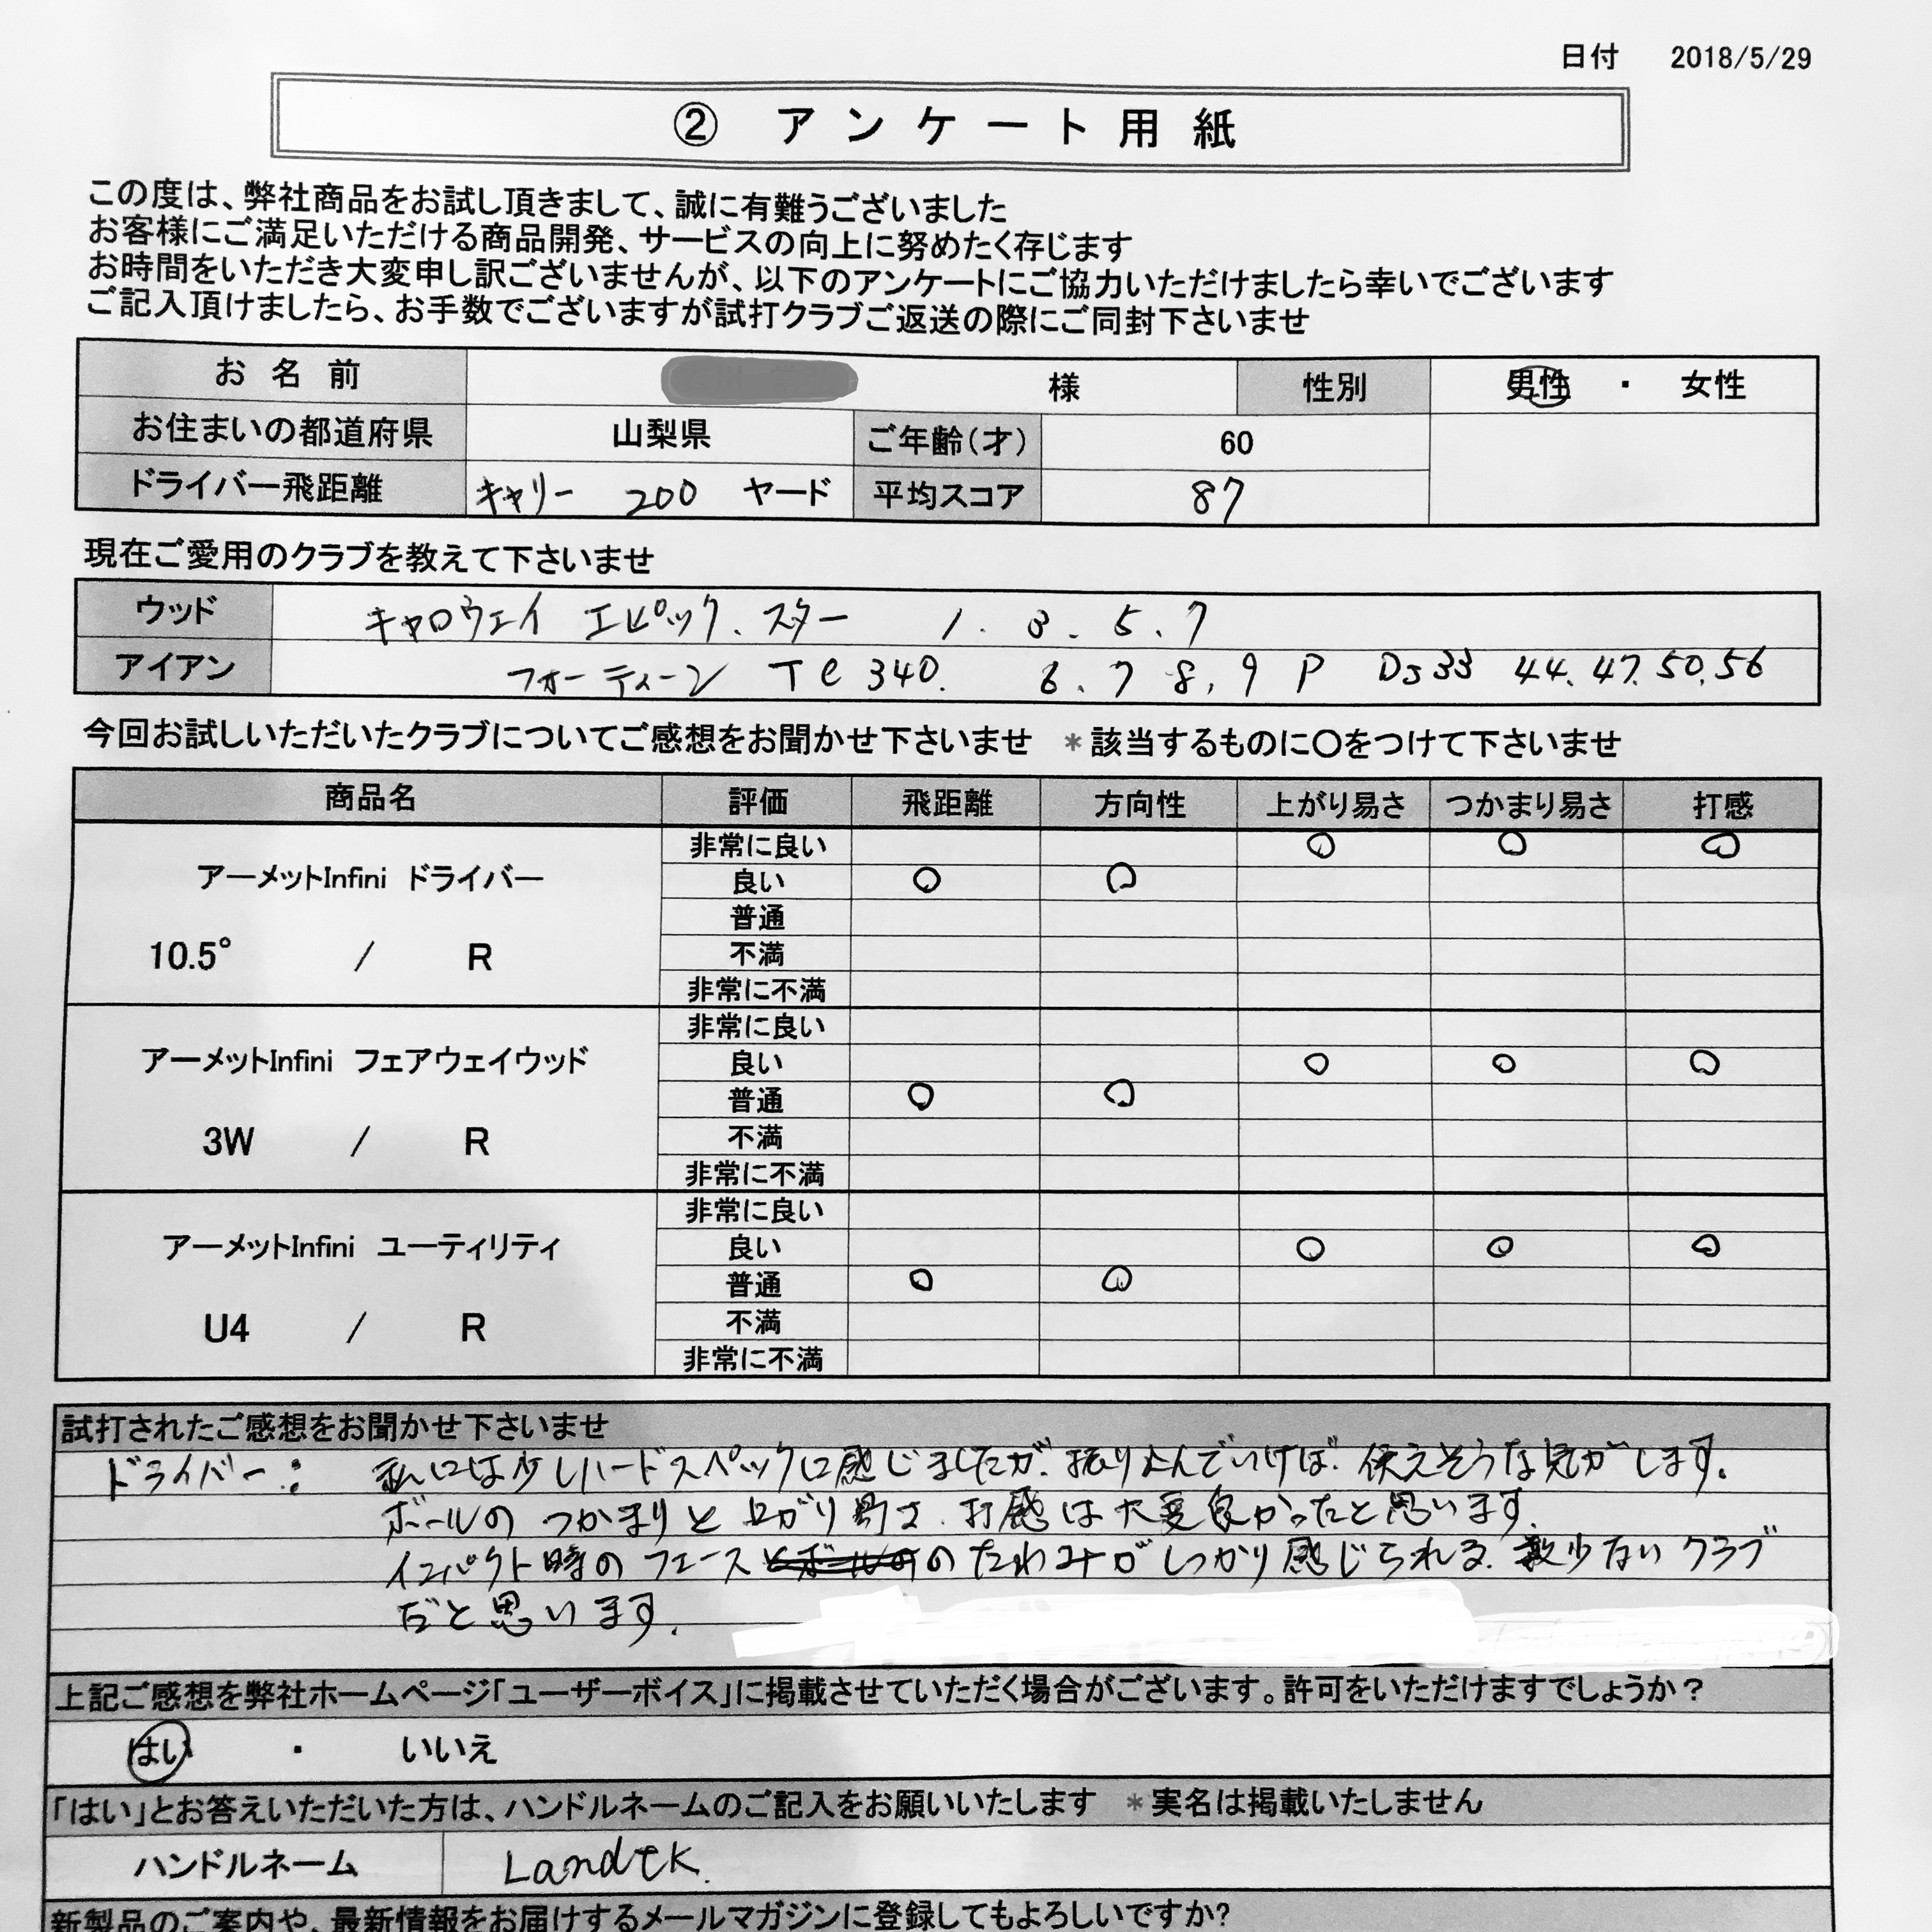 日付 2018/5/29
② アンケート用紙
この度は、弊社商品をお試し頂きまして、誠に有難うございました
お客様にご満足いただける商品開発、サービスの向上に努めたく存じます
お時間をいただき大変申し訳ございませんが、以下のアンケートにご協力いただけましたら幸いでございます
ご記入頂けましたら、お手数でございますが試打クラブご返送の際にご同封下さいませ
お名前 様 性別 男性 ・ 女性
お住まいの都道府県 山梨県 ご年齢(才) 60
ドライバー飛距離 キャリー 200 ヤード 平均スコア 87
現在ご愛用のクラブを教えて下さいませ
ウッド キャロウェイ エピック.スター 1.3.5.7
アイアン フォーティーン TC340. 6.7 8,9 P DJ33 44.47.50.56
今回お試しいただいたクラブについてご感想をお聞かせ下さいませ *該当するものに○をつけて下さいませ
商品名 評価 飛距離 方向性 上がり易さ つかまり易さ 打感
アーメットInfini ドライバー
10.5° / R
非常に良い ○ ○ ○
良い ○ ○
普通
不満
非常に不満
アーメットInfini フェアウェイウッド
3W / R
非常に良い
良い ○ ○ ○
普通 ○ ○
不満
非常に不満
アーメットInfini ユーティリティ
U4 / R
非常に良い
良い ○ ○ ○
普通 ○ ○
不満
非常に不満
試打されたご感想をお聞かせ下さいませ
ドライバー: 私には少しハードスペックに感じましたが、振り込んでいけば、使えそうな気がします.
ボールのつかまりと上がり易さ.打感は大変良かったと思います.
インパクト時のフェースのたわみがしっかり感じられる.数少ないクラブ
だと思います.
上記ご感想を弊社ホームページ「ユーザーボイス」に掲載させていただく場合がございます。許可をいただけますでしょうか?
はい ・ いいえ
「はい」とお答えいただいた方は、ハンドルネームのご記入をお願いいたします *実名は掲載いたしません
ハンドルネーム Landtk.
新製品のご案内や、最新情報をお届けするメールマガジンに登録してもよろしいですか?